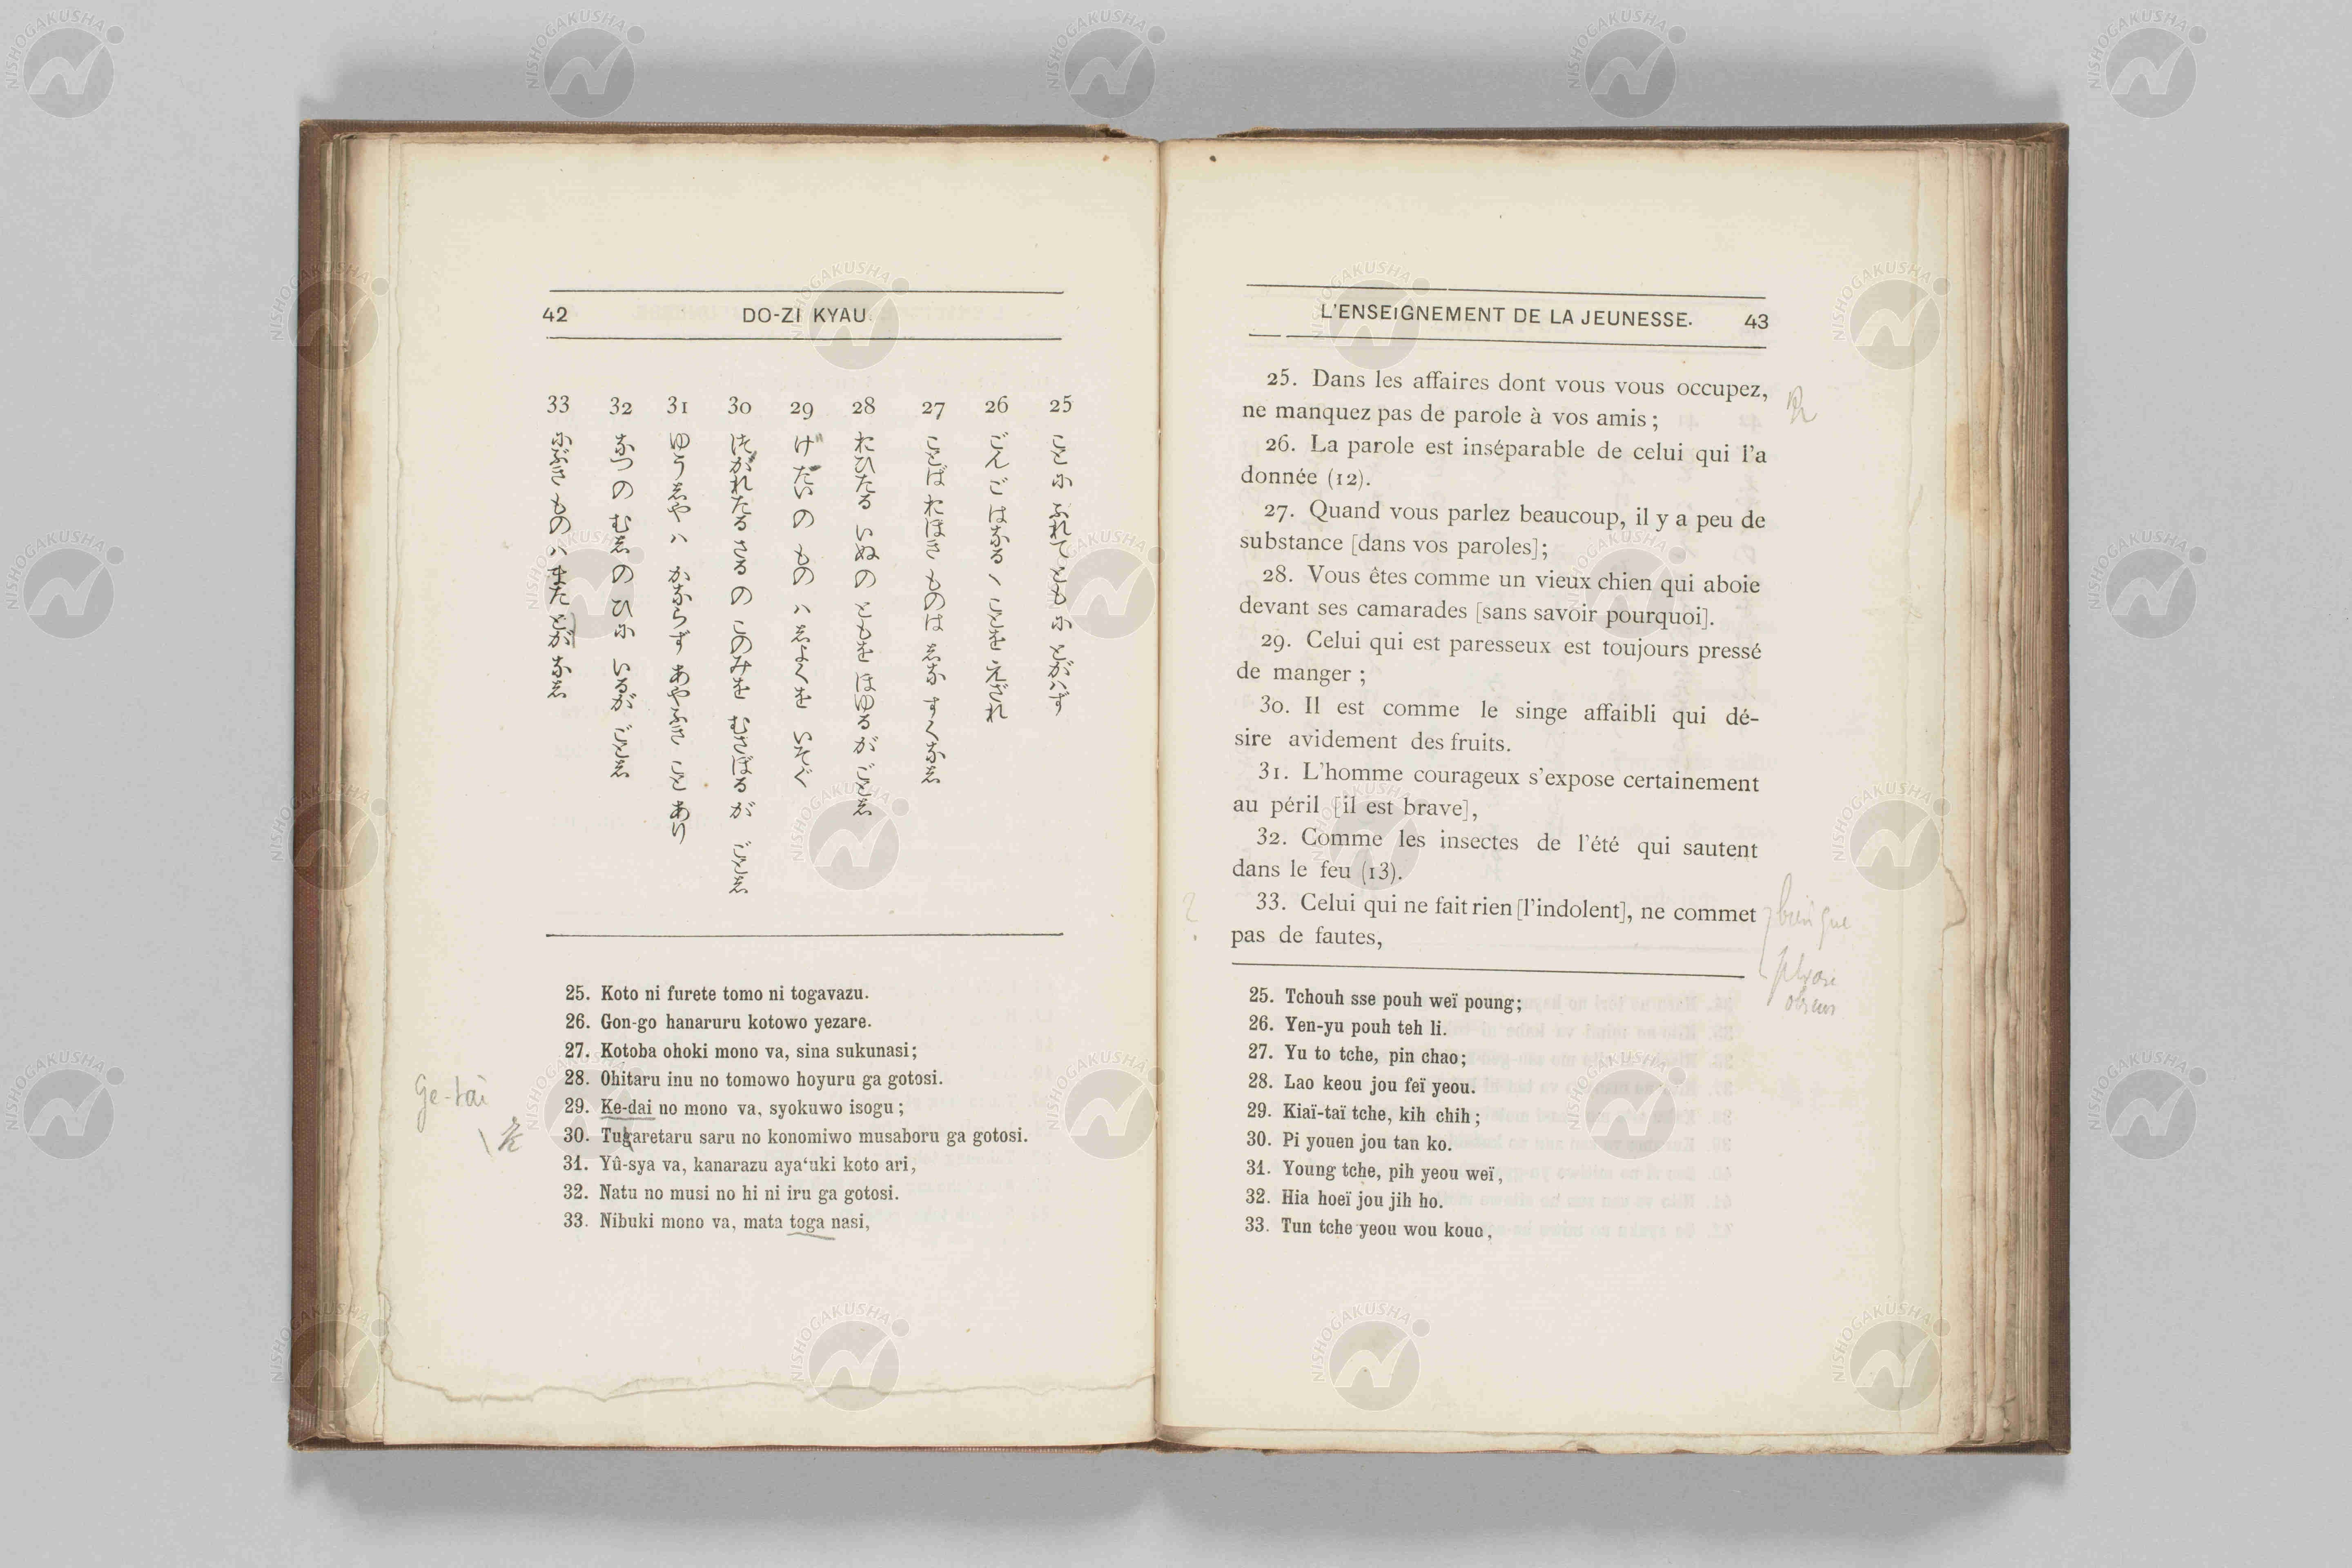 42 DO-ZI KYAU.
25 ことにふれてともにとがハず
26 ごんごはなるゝことをえざれ
27 ことばおほきものはしなすくなし
28 おひたるいぬのともをほゆるがごとし
29 げだいのものハしよくをいそぐ
30 つかれたるさるのこのみをむさぼるがごとし
31 ゆうしやハかならずあやふきことあり
32 なつのむしのひにいるがごとし
33 にぶきものハまたとがなし
25. Koto ni furete tomo ni togavazu.
26. Gon-go hanaruru kotowo yezare.
27. Kotoba ohoki mono va, sina sukunasi;
28. Ohitaru inu no tomowo hoyuru ga gotosi.
Ge-tai
29. Ke-dai no mono va, syokuwo isogu;
k
30. Tukaretaru saru no konomiwo musaboru ga gotosi.
31. Yû-sya va, kanarazu aya‘uki koto ari,
32. Natu no musi no hi ni iru ga gotosi.
33. Nibuki mono va, mata toga nasi,
L'ENSEIGNEMENT DE LA JEUNESSE. 43
25. Dans les affaires dont vous vous occupez,
ne manquez pas de parole à vos amis;
26. La parole est inséparable de celui qui l'a
donnée (12).
27. Quand vous parlez beaucoup, il y a peu de
substance [dans vos paroles];
28. Vous êtes comme un vieux chien qui aboie
devant ses camarades [sans savoir pourquoi].
29. Celui qui est paresseux est toujours pressé
de manger;
30. Il est comme le singe affaibli qui dé-
sire avidement des fruits.
31. L'homme courageux s'expose certainement
au péril [il est brave],
32. Comme les insectes de l'été qui sautent
dans le feu (13).
33. Celui qui ne fait rien [l'indolent], ne commet
pas de fautes,
?
25. Tchouh sse pouh weï poung;
26. Yen-yu pouh teh li.
27. Yu to tche, pin chao;
28. Lao keou jou feï yeou.
29. Kiaï-taï tche, kih chih;
30. Pi youen jou tan ko.
31. Young tche, pih yeou weï,
32. Hia hoeï jou jih ho.
33. Tun tche yeou wou kouo,
NISHOGAKUSHA